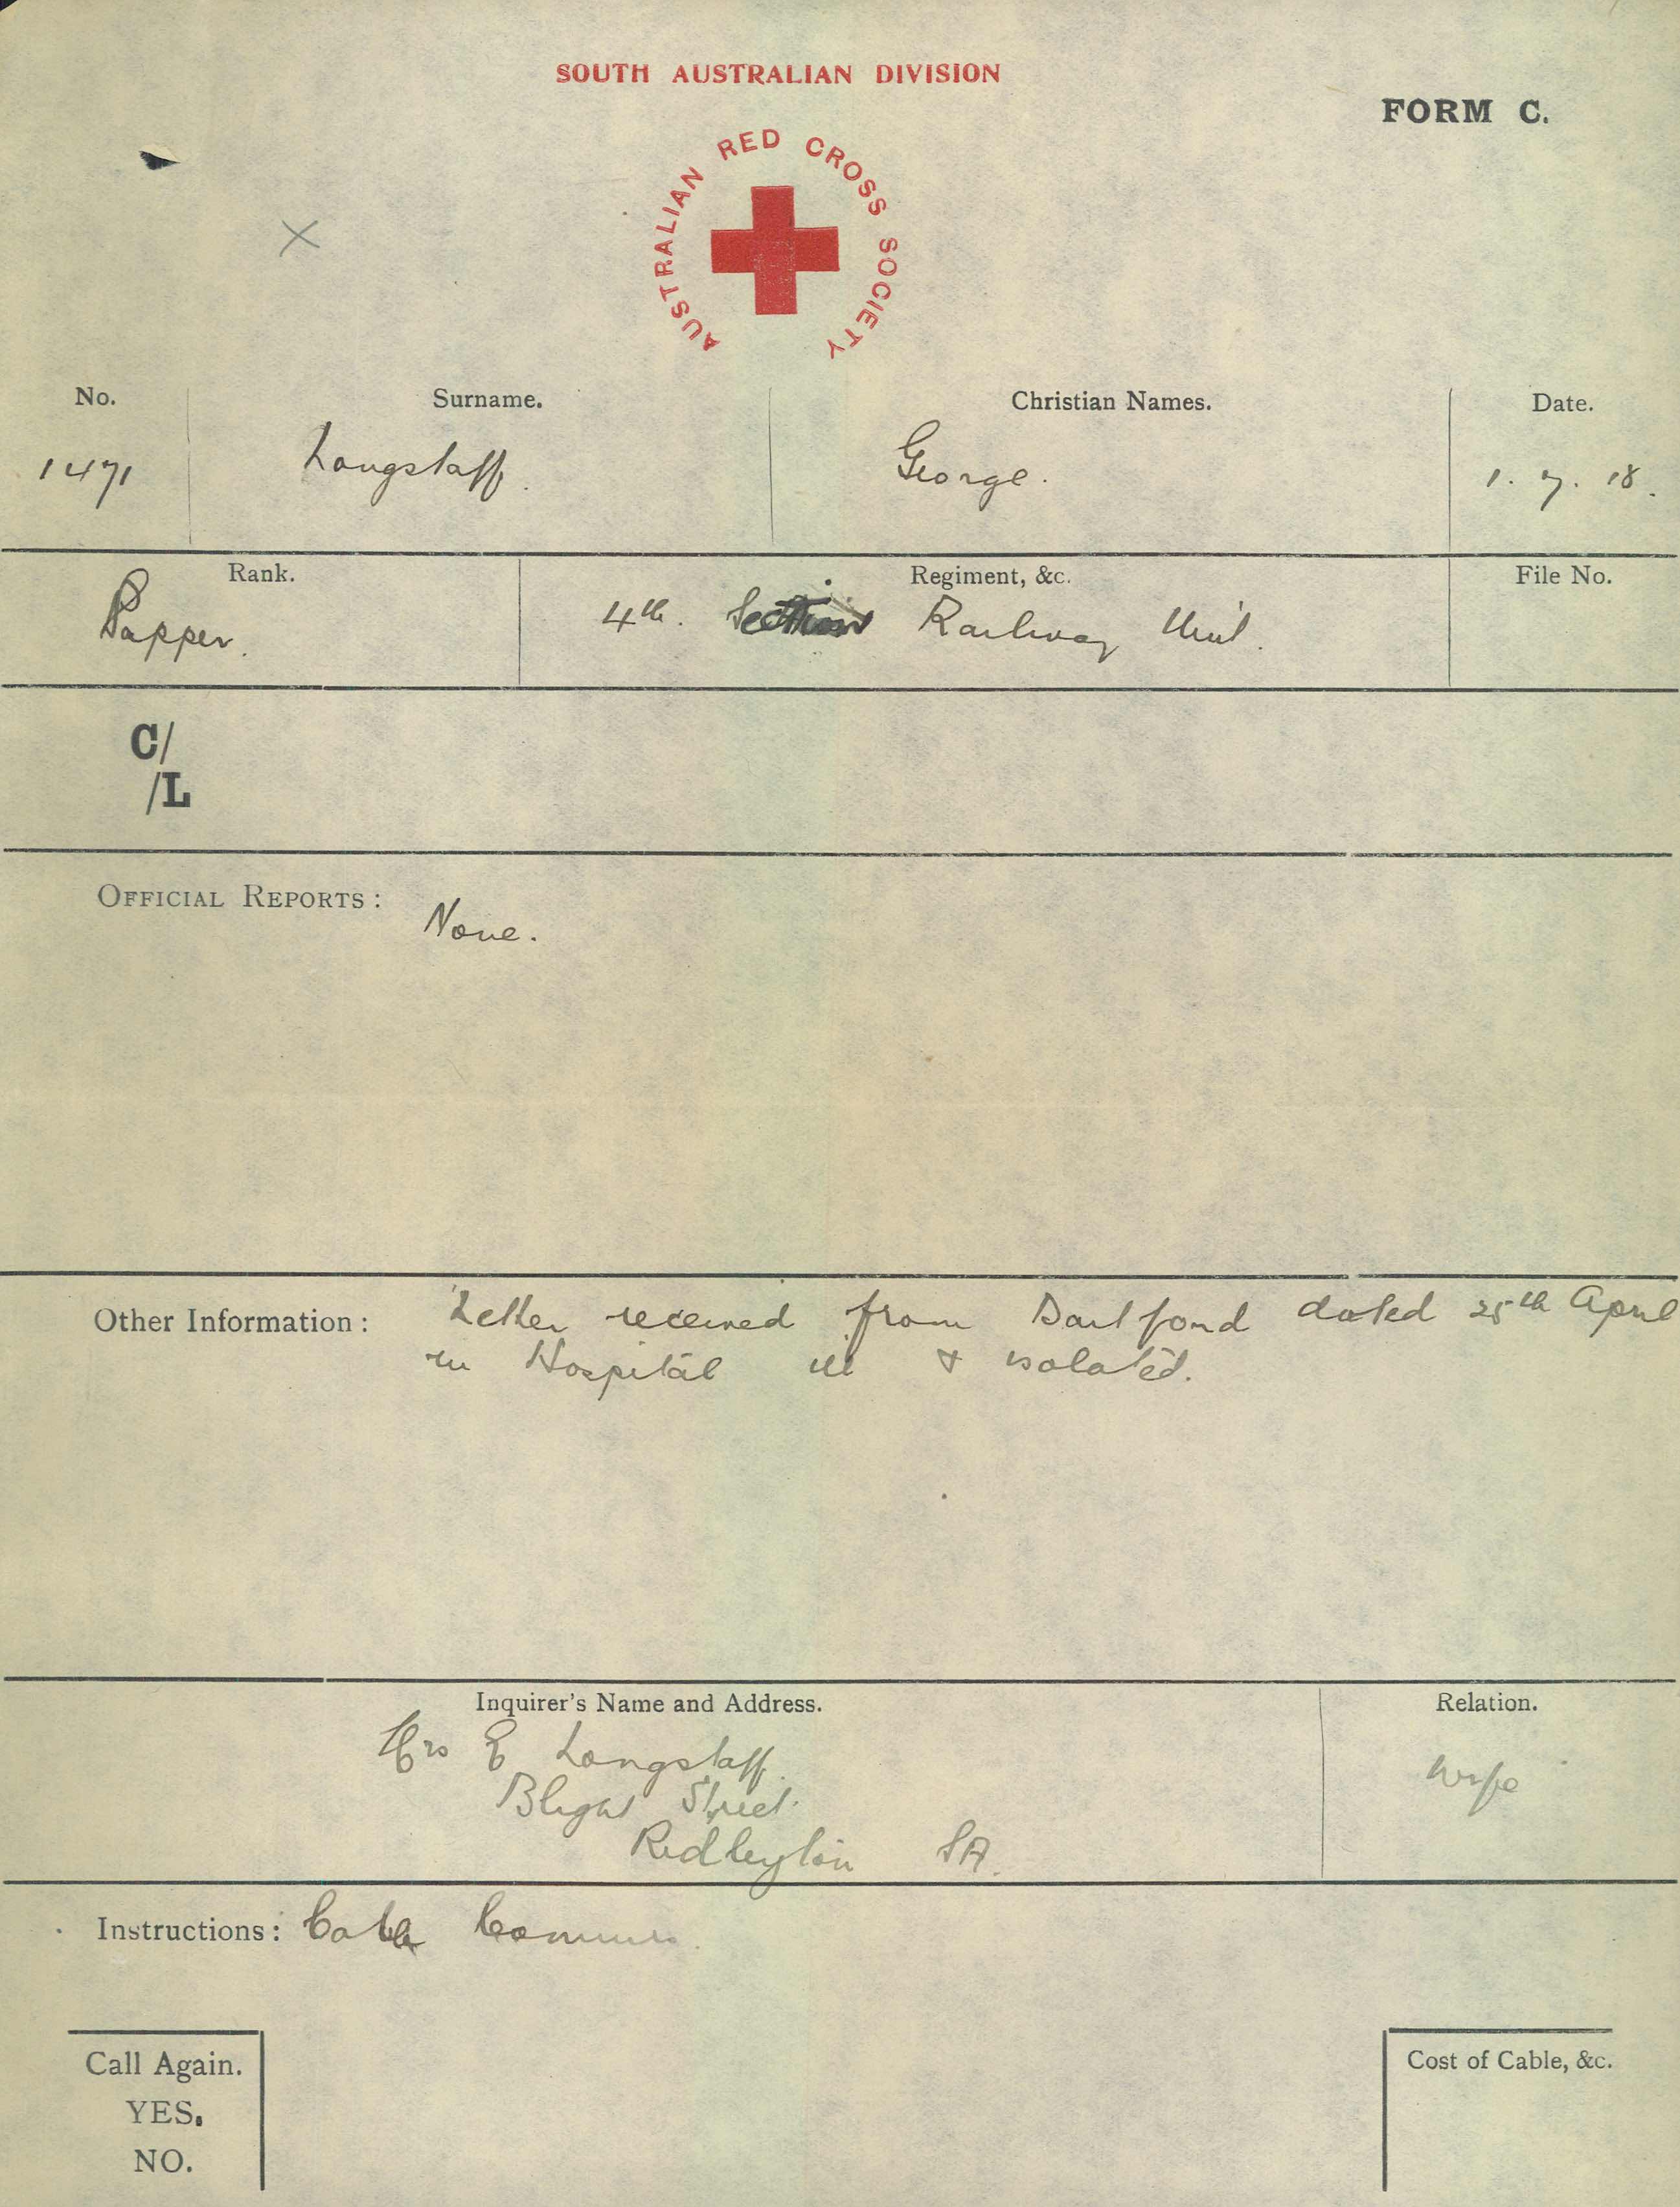 SOUTH AUSTRALIAN DIVISION
FORM C.
AUSTRALIAN RED CROSS SOCIETY
X
No. Surname. Christian Names. Date.
1471 Longstaff. George. 1. 7. 18.
Rank. Regiment, &c. File No.
Sapper. 4th. Section Railway Unit.
C/
/L
OFFICIAL REPORTS: None.
Other Information: Letter received from Dartford dated 25th April
in Hospital ill & isolated.
Inquirer's Name and Address. Relation.
Mrs E Longstaff. wife
Blight Street.
Ridleyton SA.
Instructions: Cable
Call Again. Cost of Cable, &c.
YES.
NO.